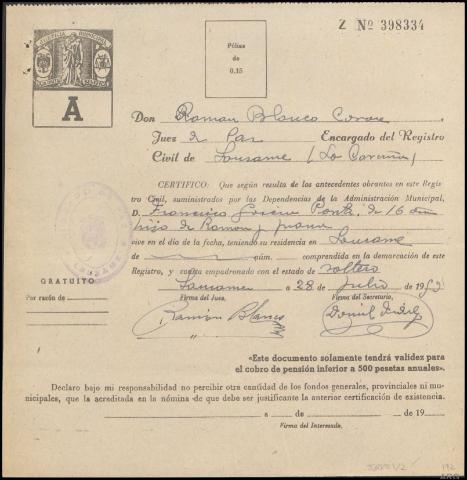 Z Nº 398334
JUSTICIA MUNICIPAL
A
Póliza
de
0,15
Don Ramon Blanco
Juez de Paz Encargado del Registro
Civil de Lousame (La Coruña)
CERTIFICO: Que según resulta de los antecedentes obrantes en este Regis
tro Civil, suministrados por las Dependencias de la Administración Municipal,
D. Francisco de 16 años
hijo de Ramon y Juana
vive en el día de la fecha, teniendo su residencia en Lousame
de núm. comprendida en la demarcación de este
Registro, y consta empadronado con el estado de soltero
Lousame a 28 de Julio de 195
Firma del Juez. Firma del Secretario,
Ramón Blanco
GRATUITO
Por razón de
«Este documento solamente tendrá validez para
el cobro de pensión inferior a 500 pesetas anuales».
Declaro bajo mi responsabilidad no percibir otra cantidad de los fondos generales, provinciales ni mu-
nicipales, que la acreditada en la nómina de que debe ser justificante la anterior certificación de existencia.
a de de 19
Firma del Interesado.
192